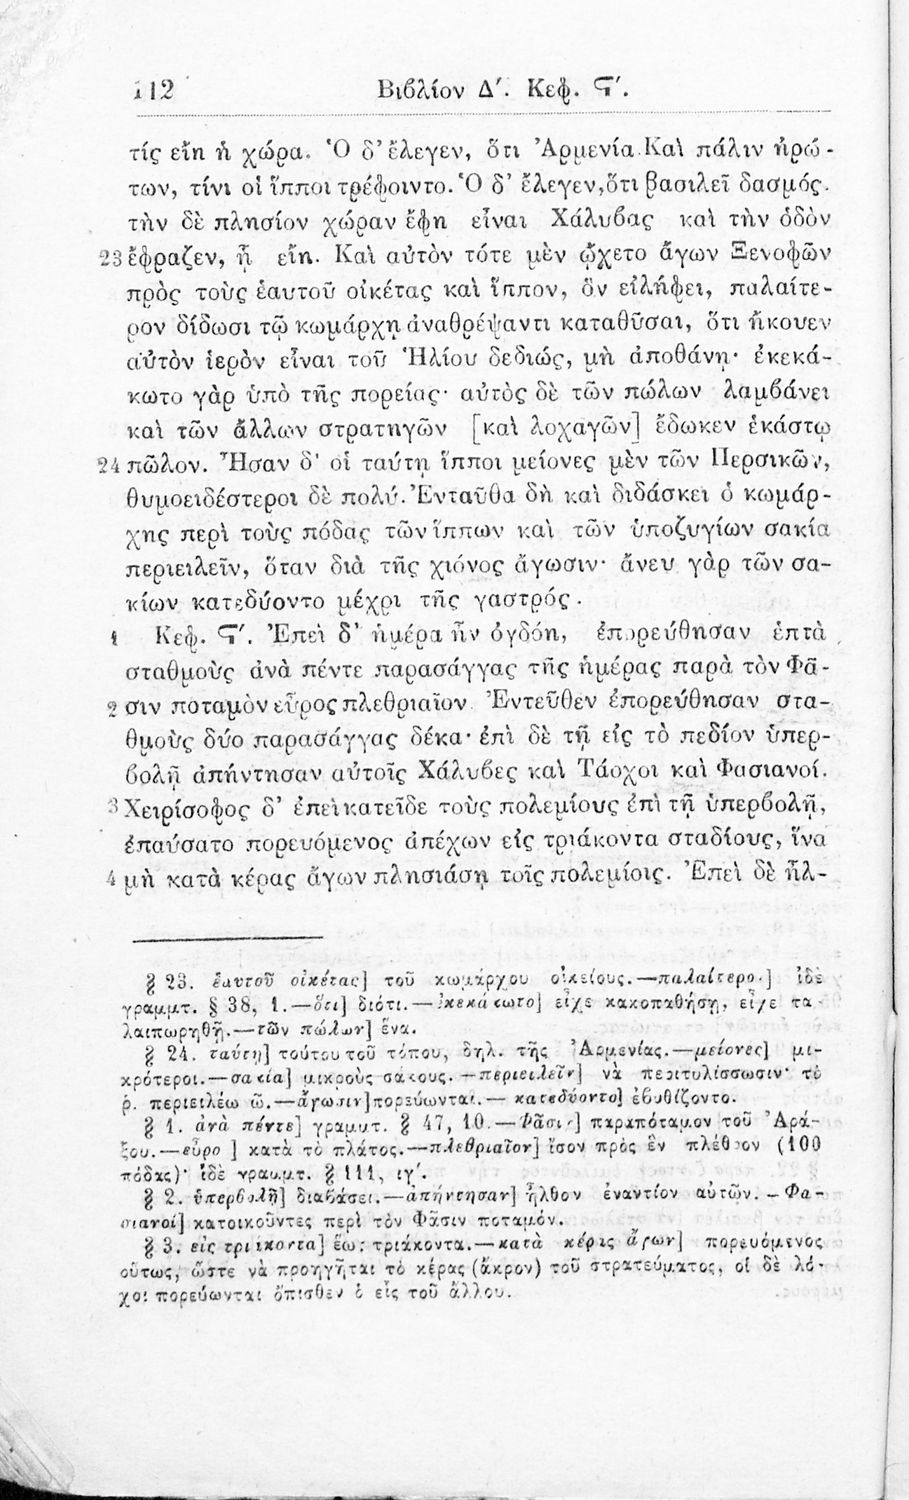 112 Βιβλίον Δʹ. Κεφ. Ϛʹ.
τίς εἴη ἡ χώρα. Ὁ δ' ἔλεγεν, ὅτι Ἀρμενία. Καὶ πάλιν ἠρώ-
των, τίνι οἱ ἵπποι τρέφοιντο. Ὁ δ' ἔλεγεν, ὅτι βασιλεῖ δασμός.
τὴν δὲ πλησίον χώραν ἔφη εἶναι Χάλυβας καὶ τὴν ὁδὸν
23 ἔφραζεν, ᾗ εἴη. Καὶ αὐτὸν τότε μὲν ᾤχετο ἄγων Ξενοφῶν
πρὸς τοὺς ἑαυτοῦ οἰκέτας καὶ ἵππον, ὃν εἰλήφει, παλαίτε-
ρον δίδωσι τῷ κωμάρχῃ ἀναθρέψαντι καταθῦσαι, ὅτι ἤκουεν
αὐτὸν ἱερὸν εἶναι τοῦ Ἡλίου δεδιώς, μὴ ἀποθάνῃ· ἐκεκά-
κωτο γὰρ ὑπὸ τῆς πορείας· αὐτὸς δὲ τῶν πώλων λαμβάνει
καὶ τῶν ἄλλων στρατηγῶν [καὶ λοχαγῶν] ἔδωκεν ἑκάστῳ
24 πῶλον. Ἦσαν δ' οἱ ταύτῃ ἵπποι μείονες μὲν τῶν Περσικῶν,
θυμοειδέστεροι δὲ πολύ. Ἐνταῦθα δὴ καὶ διδάσκει ὁ κωμάρ-
χης περὶ τοὺς πόδας τῶν ἵππων καὶ τῶν ὑποζυγίων σακία
περιειλεῖν, ὅταν διὰ τῆς χιόνος ἄγωσιν· ἄνευ γὰρ τῶν σα-
κίων κατεδύοντο μέχρι τῆς γαστρός.
1 Κεφ. Ϛʹ. Ἐπεὶ δ' ἡμέρα ἦν ὀγδόη, ἐπορεύθησαν ἑπτὰ
σταθμοὺς ἀνὰ πέντε παρασάγγας τῆς ἡμέρας παρὰ τὸν Φᾶ-
2 σιν ποταμὸν εὖρος πλεθριαῖον. Ἐντεῦθεν ἐπορεύθησαν στα-
θμοὺς δύο παρασάγγας δέκα· ἐπὶ δὲ τῇ εἰς τὸ πεδίον ὑπερ-
βολῇ ἀπήντησαν αὐτοῖς Χάλυβες καὶ Τάοχοι καὶ Φασιανοί.
3 Χειρίσοφος δ' ἐπεὶ κατεῖδε τοὺς πολεμίους ἐπὶ τῇ ὑπερβολῇ,
ἐπαύσατο πορευόμενος ἀπέχων εἰς τριάκοντα σταδίους, ἵνα
4 μὴ κατὰ κέρας ἄγων πλησιάσῃ τοῖς πολεμίοις. Ἐπεὶ δὲ ἦλ-
§ 23. ἑαυτοῦ οἰκέτας] τοῦ κωμάρχου οἰκείους.—παλαίτερον] ἰδὲ
γραμμτ. § 38, 1.—ὅτι] διότι.—ἐκεκάκωτο] εἶχε κακοπαθήσῃ, εἶχε τα
λαιπωρηθῇ.—τῶν πώλων] ἕνα.
§ 24. ταύτῃ] τούτου τοῦ τόπου, δηλ. τῆς Ἀρμενίας.—μείονες] μι-
κρότεροι.—σακία] μικροὺς σάκους.—περιειλεῖν] νὰ περιτυλίσσωσιν· τὸ
ῥ. περιειλέω ῶ.—ἄγωσιν] πορεύωνται.—κατεδύοντο] ἐβυθίζοντο.
§ 1. ἀνὰ πέντε] γραμμτ. § 47, 10.—Φᾶσιν] παραπόταμον τοῦ Ἀρά-
ξου.—εὖρος] κατὰ τὸ πλάτος.—πλεθριαῖον] ἴσον πρὸς ἓν πλέθρον (100
πόδας)· ἰδὲ γραμμτ. § 111, ιγʹ.
§ 2. ὑπερβολῇ] διαβάσει.—ἀπήντησαν] ἦλθον ἐναντίον αὐτῶν.—Φα-
σιανοί] κατοικοῦντες περὶ τὸν Φᾶσιν ποταμόν.
§ 3. εἰς τριάκοντα] ἕως τριάκοντα.—κατὰ κέρας ἄγων] πορευόμενος
οὕτως, ὥστε νὰ προηγῆται τὸ κέρας (ἄκρον) τοῦ στρατεύματος, οἱ δὲ λό-
χοι πορεύωνται ὄπισθεν ὁ εἷς τοῦ ἄλλου.